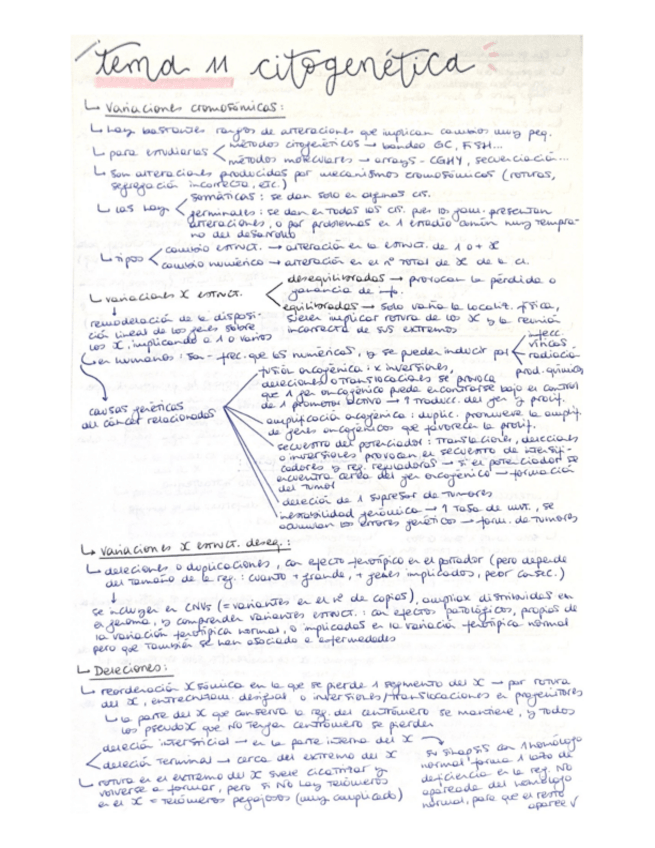 tema 11 citogenética
↳ variaciones cromosómicas:
↳ hay bastantes rangos de alteraciones que implican cambios muy peq.
↳ para estudiarlas < métodos citogenéticos → bandeo GC, FISH...
métodos moleculares → arrays-CGHY, secuenciación...
↳ son alteraciones producidas por mecanismos cromosómicos (roturas,
segregación incorrecta, etc.)
↳ las hay < somáticas: se dan solo en algunas cls.
germinales: se dan en todas las cls. pq. 10 gam. presentan
alteraciones, o por problemas en 1 estadio común muy tempra-
no del desarrollo
↳ tipos < cambio estruct. → alteración en la estruct. de 1 o + X
cambio numérico → alteración en el nº total de X de la cl.
↳ variaciones X estruct. < desequilibradas → provocan la pérdida o
ganancia de info.
equilibradas → solo varía la localiz. física,
suelen implicar rotura de los X y la reunión
incorrecta de sus extremos
remodelación de la disposi-
ción lineal de los genes sobre
los X, implicando a 1 o varios
↳ en humanos: son - frec. que las numéricas, y se pueden inducir por < infecc.
víricas
radiación
prod. químicos
causas genéticas
del cáncer relacionadas
fusión oncogénica: x inversiones,
deleciones o translocaciones se provoca
que 1 gen oncogénico pueda encontrarse bajo el control
de 1 promotor activo → ↑ traducc. del gen y prolif.
amplificación oncogénica: duplic. promueve la amplif.
de genes oncogénicos que favorecen la prolif.
secuestro del potenciador: translocaciones, deleciones
o inversiones provocan el secuestro de intensifi-
cadores y reg. reguladoras → si el potenciador se
encuentra cerca del gen oncogénico → formación
del tumor
deleción de 1 supresor de tumores
inestabilidad genómica → ↑ tasa de mut., se
acumulan los errores genéticos → form. de tumores
↳ variaciones X estruct. deseq.:
↳ deleciones o duplicaciones, con efecto fenotípico en el portador (pero depende
del tamaño de la reg.: cuanto + grande, + genes implicados, peor consec.)
se incluyen en CNVs (= variantes en el nº de copias), ampliax distribuidas en
el genoma, y comprenden variantes estruct.: con efectos patológicos, propias de
la variación fenotípica normal, o implicadas en la variación fenotípica normal
pero que también se han asociado a enfermedades
↳ Deleciones:
↳ reordenación Xsómica en la que se pierde 1 segmento del X → por rotura
del X, entrecruzam. desigual o inversiones/translocaciones en progenitores
↳ la parte del X que conserva la reg. del centrómero se mantiene, y todos
los pseudoX que NO tengan centrómero se pierden
< deleción intersticial → en la parte interna del X
deleción terminal → cerca del extremo del X
↳ rotura en el extremo del X suele cicatrizar y
volverse a formar, pero si NO hay telómeros
en el X = telómeros pegajosos (muy complicado)
su sinapsis con 1 homólogo
normal forma 1 lazo de
deficiencia en la reg. NO
apareada del homólogo
normal, para que el resto
aparee ✓